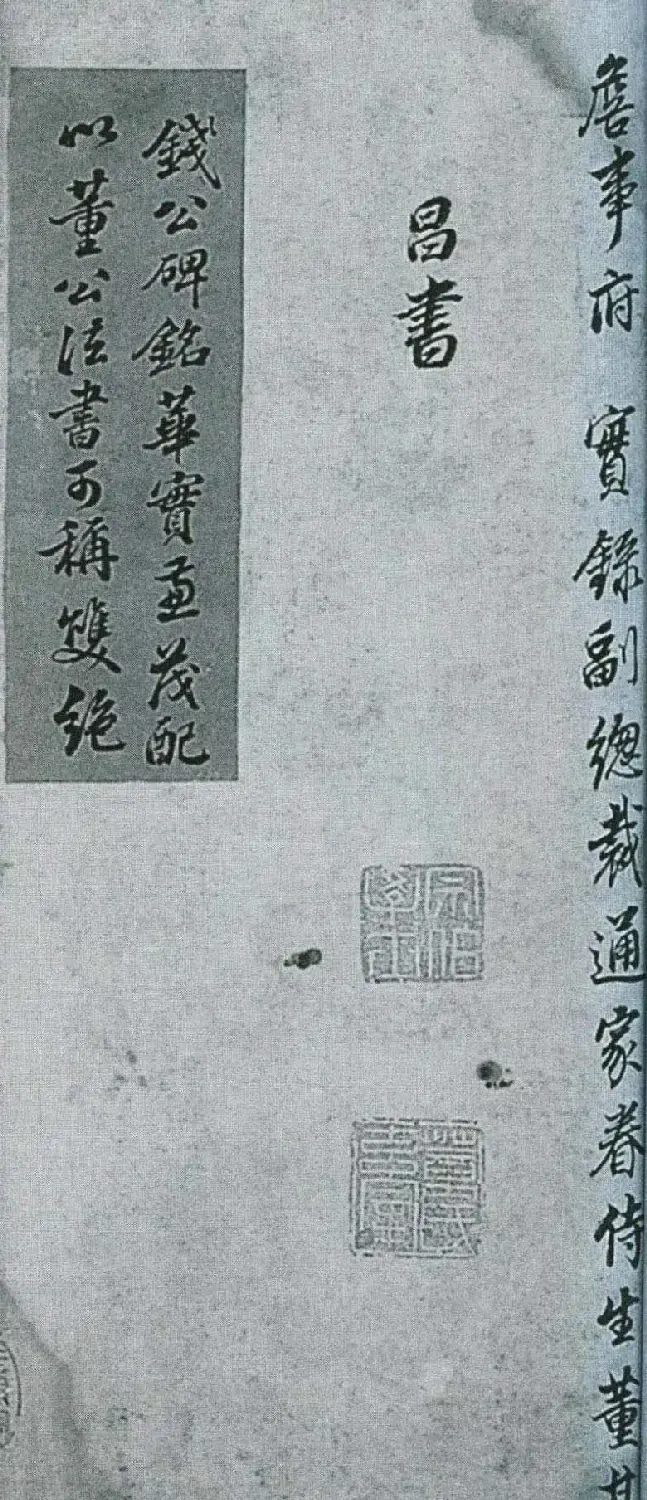 詹事府 實錄副總裁通家眷侍生董其
昌書
錢公碑銘華實並茂配
以董公法書可稱雙絕